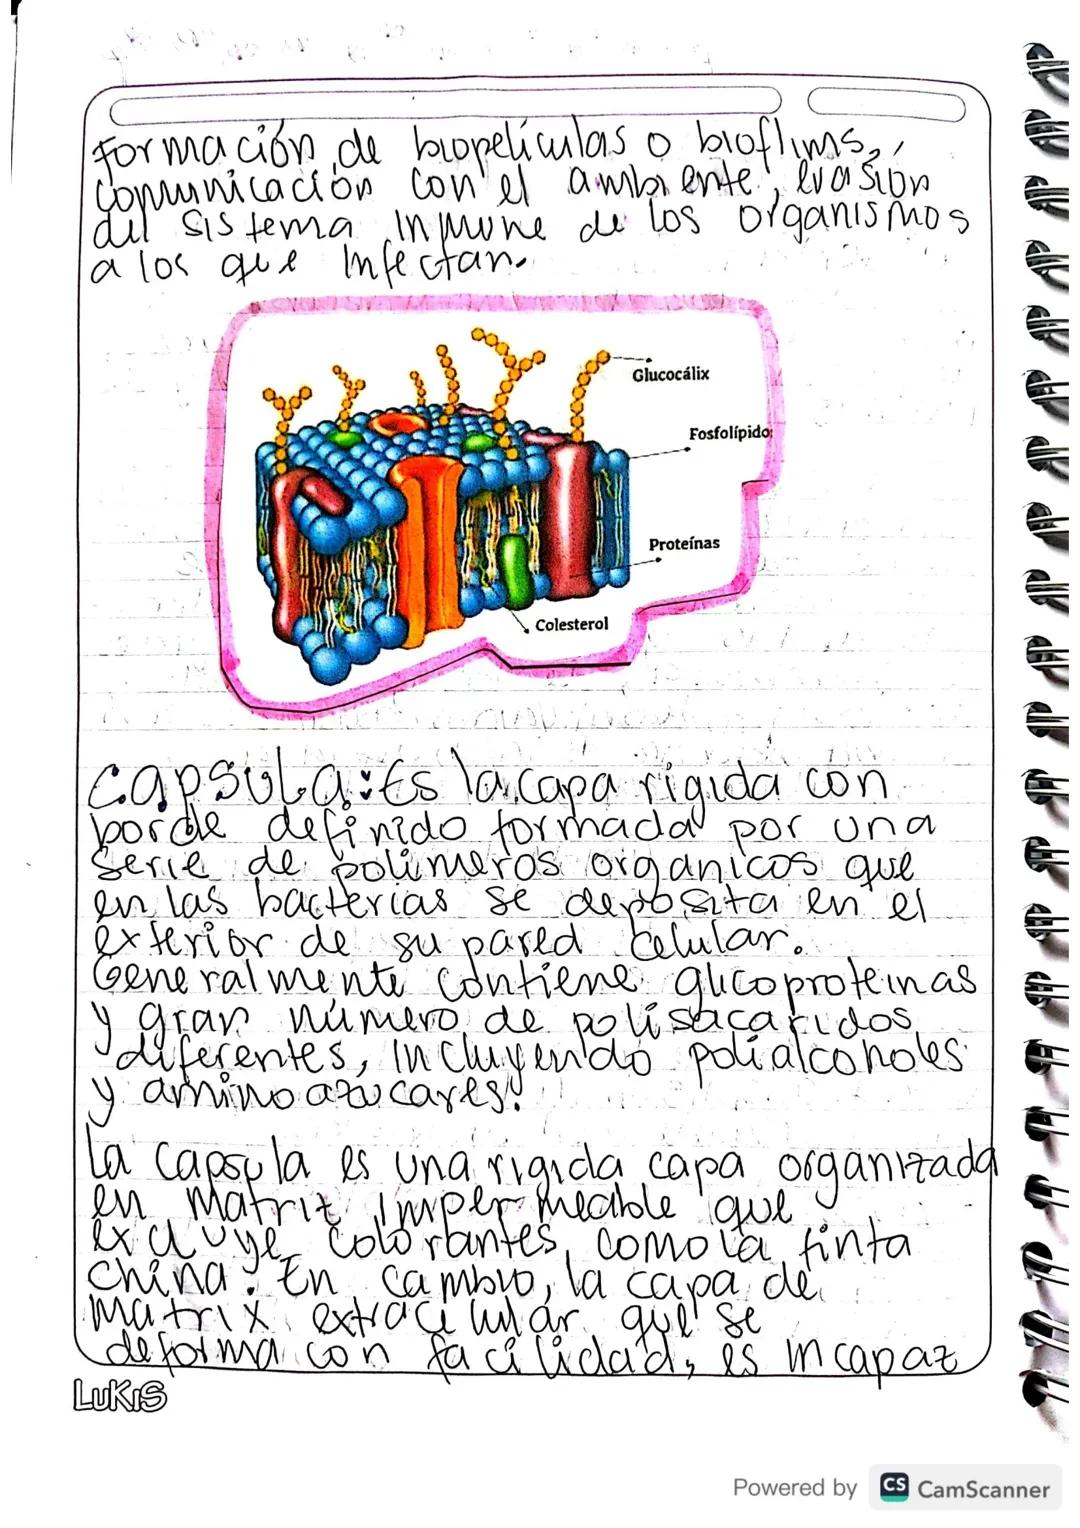 Formación de biopelículas o bioflims,
comunicación con el ambiente, evasión
del sistema inmune de los organismos
a los que infectan.
Glucocálix
Fosfolípidos
Proteínas
Colesterol
Capsula: Es la capa rigida con
borde definido formada por una
serie de polimeros organicos que
en las bacterias se deposita en el
exterior de su pared celular.
Generalmente contiene glicoproteinas
y gran número de polisacaridos
diferentes, incluyendo polialcoholes
y aminoazucares.
La capsula es una rigida capa organizada
en matriz impermeable que
excluye colorantes, como la tinta
china. En cambio, la capa de
matrix extracelular que se
deforma con facilidad, es incapaz
LUKIS
Powered by CS CamScanner